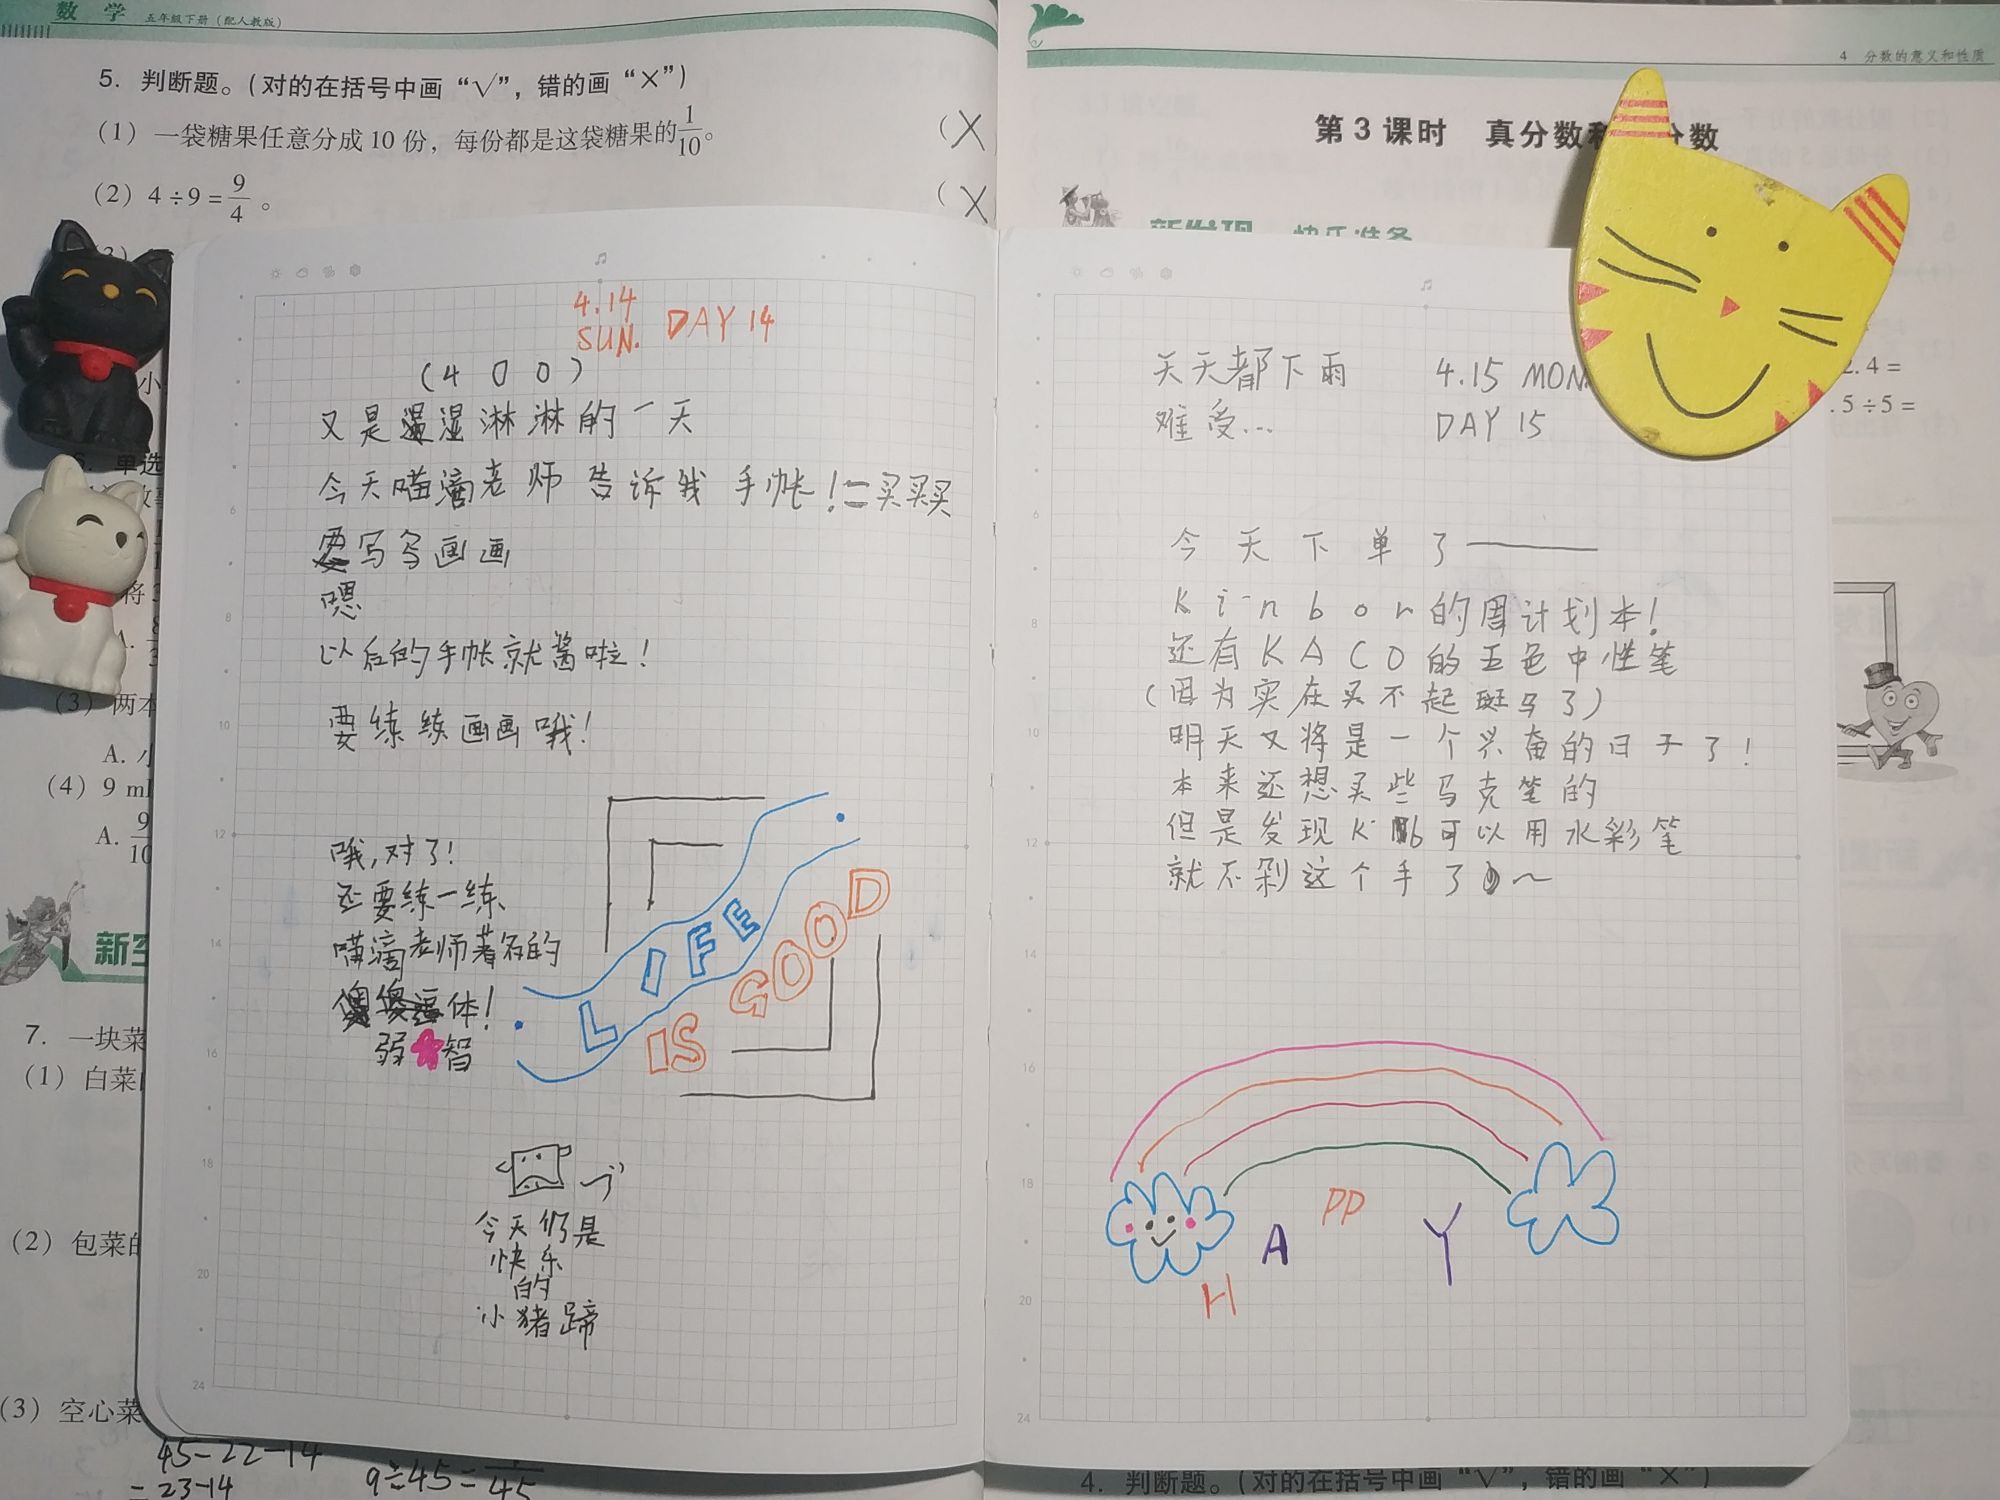 数 学 五年级下册（配人教版）
5. 判断题。(对的在括号中画“√”，错的画“×”)
(1) 一袋糖果任意分成 10 份，每份都是这袋糖果的1/10。 (X
(2) 4÷9=9/4。 (X
小
6. 单选
将 3
A.
(3) 两本
A. 小
(4) 9 ml
A. 9/10
7. 一块菜
(1) 白菜
(2) 包菜的
(3) 空心菜
45-22-14
=23-14
9÷45= 45
4.14
SUN. DAY 14
(4 0 0)
又是湿淋淋的一天
今天喵滴老师告诉我 手帐!=买买买
要写写画画
嗯
以后的手帐就酱啦!
要练练画画哦!
哦,对了!
还要练一练
喵滴老师著名的
体!
弱智
LIFE
IS GOOD
今天仍是
快乐
的
小猪蹄
4 分数的意义和性质
第 3 课时 真分数 分数
新发现 快乐准备
2.4=
.5÷5=
天天都下雨 4.15 MON
难受... DAY 15
今天下单了——
Kinbor的周计划本!
还有KACO的五色中性笔
(因为实在买不起斑马了)
明天又将是一个兴奋的日子了!
本来还想买些马克笔的
但是发现K 可以用水彩笔
就不剁这个手了~
HAPPY
4. 判断题。(对的在括号中画“√”，错的画“×”)